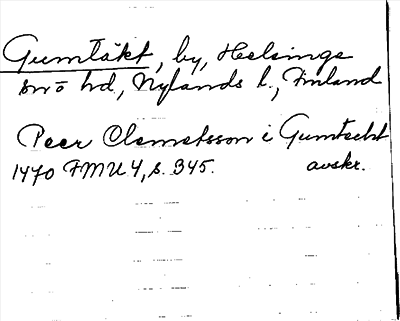 Gumtäkt, by, Helsinge
hd, Nylands l., Finland
Peer Clemetsson i Gumtecht
1470 FMU 4, s. 345. avskr.